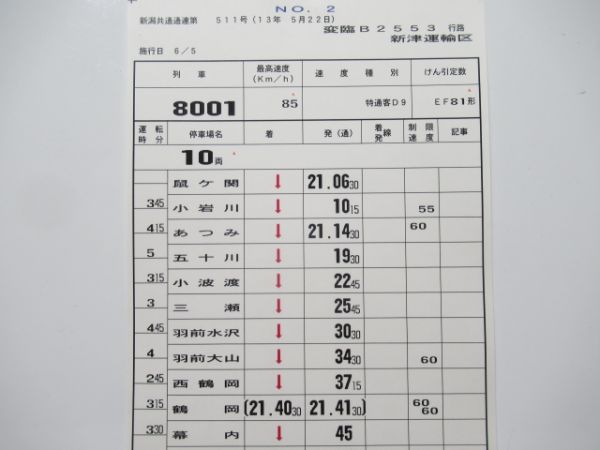 NO. 2
新潟共通通達第 511号(13年 5月22日)
変臨B2553 行路
新津運輸区
施行日 6/5
列車 最高速度(Km/h) 速度種別 けん引定数
8001 85 特通客D9 EF81形
運転時分 停車場名 着 発(通) 着発線 制限速度 記事
10両
鼠ケ関 ↓ 21.06 30
3 45 小岩川 ↓ 10 15 55
4 15 あつみ ↓ 21.14 30 60
5 五十川 ↓ 19 30
3 15 小波渡 ↓ 22 45
3 三瀬 ↓ 25 45
4 45 羽前水沢 ↓ 30 30
4 羽前大山 ↓ 34 30 60
2 45 西鶴岡 ↓ 37 15
3 15 鶴岡 (21.40 30 21.41 30) 60 60
3 30 幕内 ↓ 45